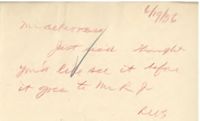 6/19/36
Mr Ackerman
Just read thought
you'd like see it before
it goes to Mr R J
RWS